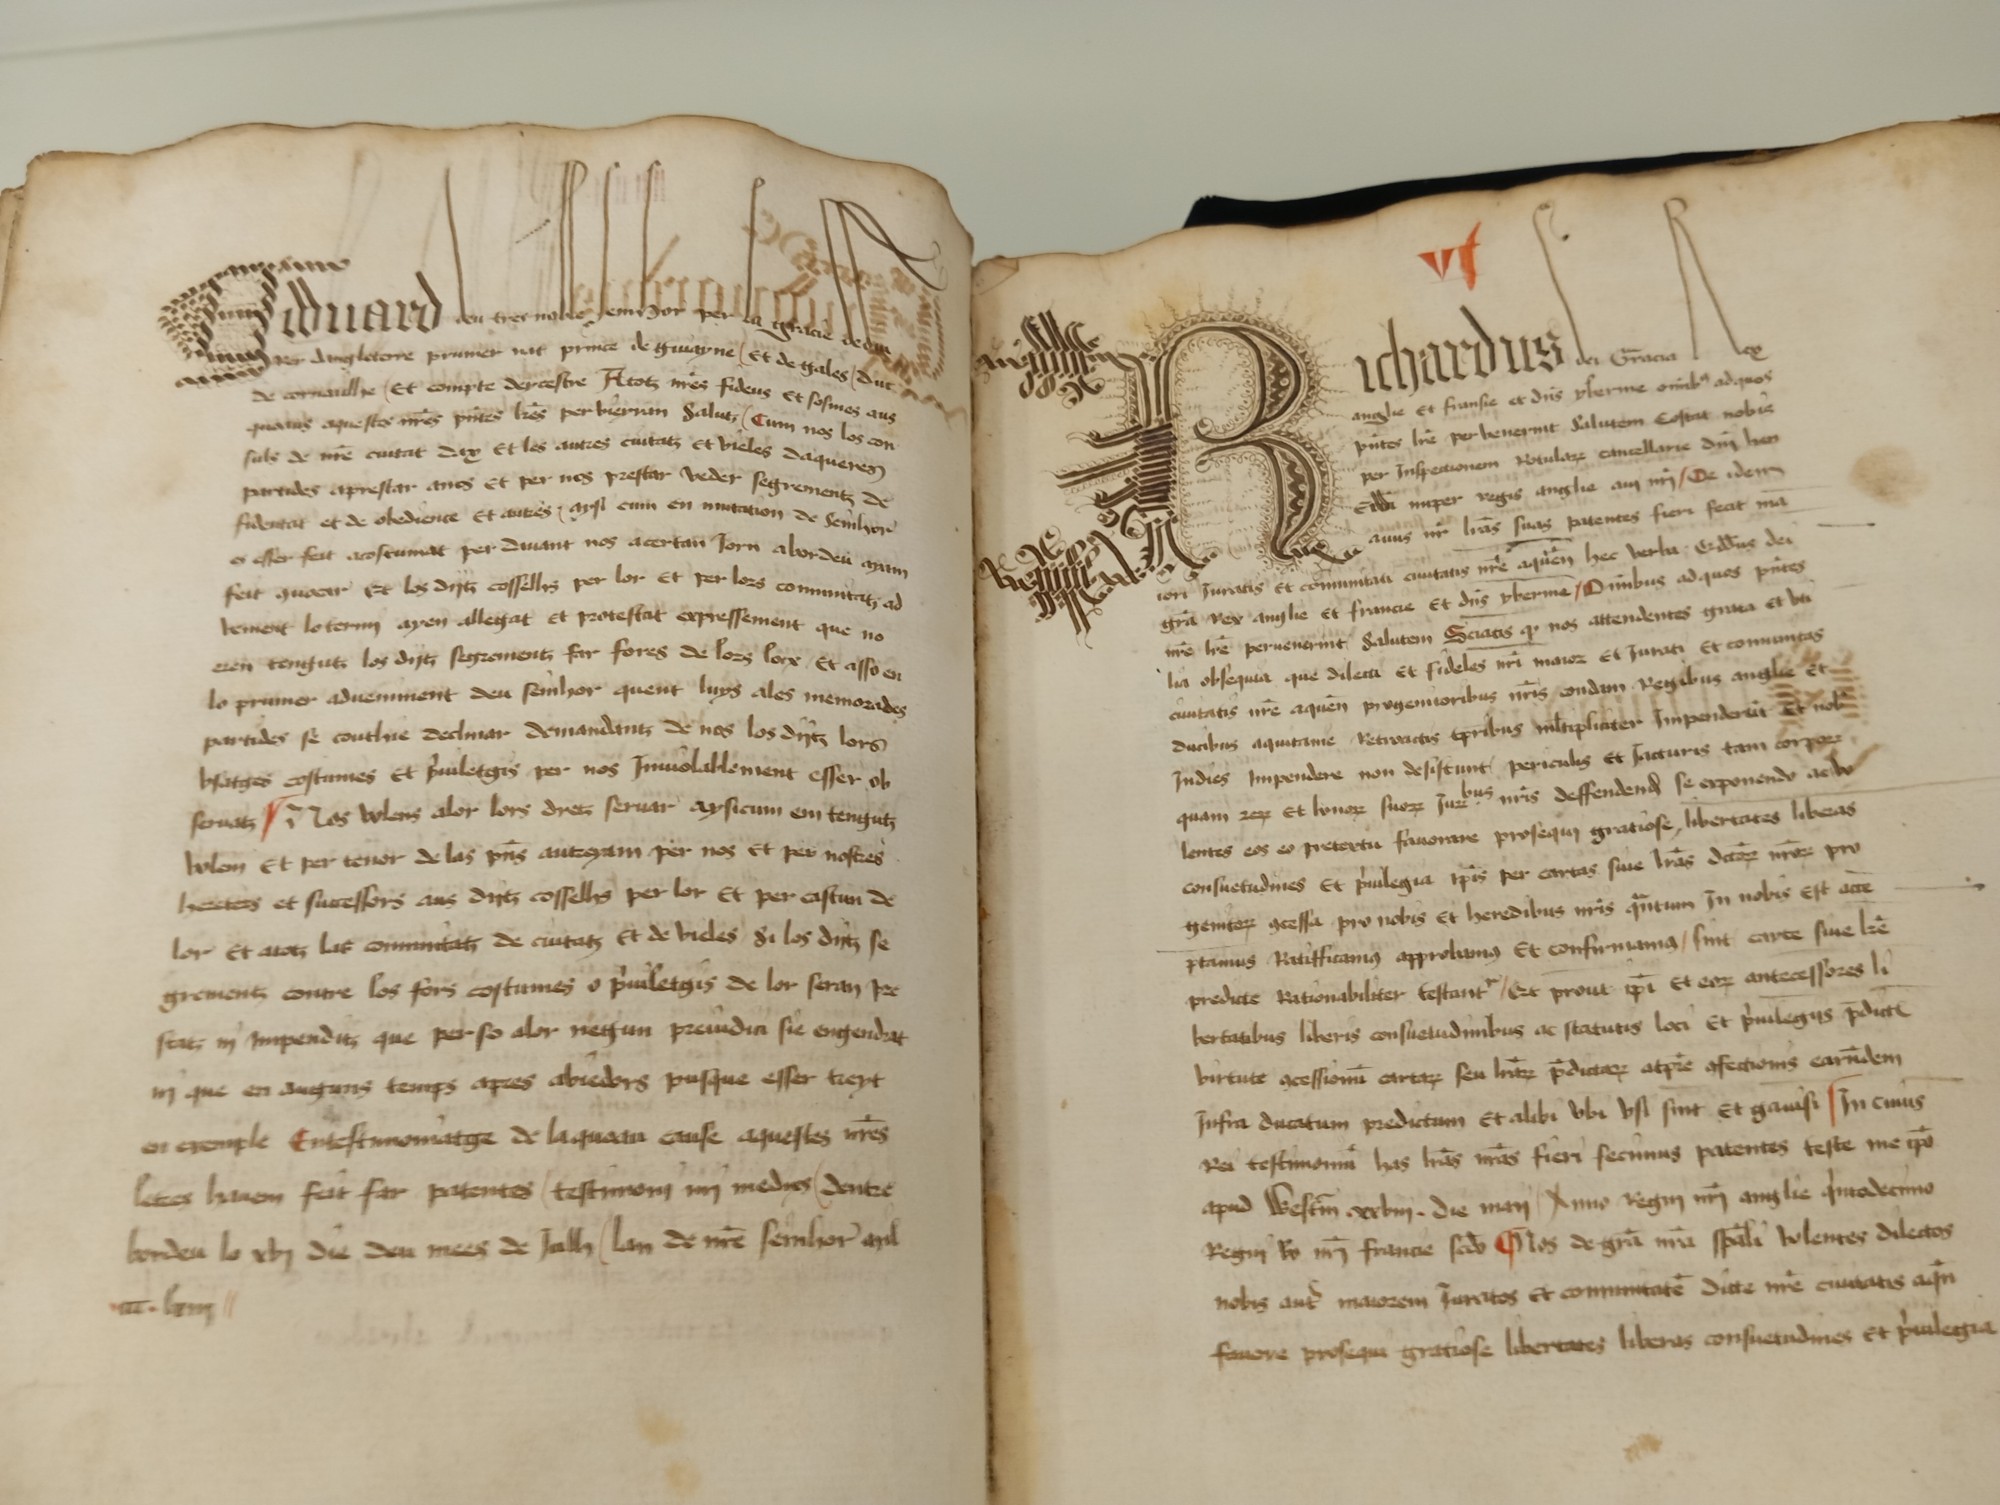 Edduard deu tres noble senhor per la gracie de diu
Rey dangleterre prumer nat prince de guiayne / Et de gales / duc
de cornailhe / Et compte dercestre Atotz nr̄es fideus Et sosmes aus
quoaus aquestes nr̄es pn̄tes lr̄es perbieran Salutz / Cum nos los con
sulz de nr̄e ciutat dax et les autres ciutatz et vieles daqueres
partides aprestar ancs et per nos prestar veder segrementz de
fideutat et de obedience et autres, aysi cum en mutation de Senhor
o esser feit acostumat per dauant nos acertan Jorn abordeu ayam
feit quoar Et los diitz cosselhs per lor Et per lors comunitatz ad
vement lo termi ayen allegat et protestat expressement que no
eren tengutz los diitz segrementz far fores de lors locx Et asso en
lo prumer adueniment deu senhor quent luys ales memorades
partides se conthie declinar demandantz de nos los diitz lors
vsatges costumes et priuiletgis per nos Inuiolablement esser ob
seruatz Nos volens alor lors dretz seruar aysicum em tengutz
volem Et per tenor de las pn̄s autreyam per nos Et per nostres
hereters et successors aus diitz cosselhs per lor Et per castun de
lor Et atotz las comunitatz de ciutatz Et de vieles Si los diitz se
grementz contre los fors costumes o priuiletgis de lor seran pre
statz ni Impenditz que per so alor negun preiudici sie engendrat
ni que en auguns temps apres abiedors pusque esser treyt
en exemple En testimoniatge de laquoau cause aquestes nr̄es
letres hauem feit far patentes / testimoni mi medis / dentre
bordeu lo xbj die deu mees de Julh / lan de nr̄e senhor mil
ccc · lxiiij
vj
Richardus dei Gracia Rex
anglie et francie et dn̄s yberme omib₉ ad quos
pn̄tes lr̄e perbenerint Salutem Costat nobis
per Inspectionem Rotuloꝝ cancellarie dn̄j hen
Edd̄i nuper regis anglie aui nr̄i / De idem
auus nr̄ lr̄as suas patentes fieri fecit ma
iori Iuratis et comunitati ciuitatis nr̄e aquēn̄ hec verba Edd̄us dei
gr̄a Rex anglie et francie Et dn̄s yberme / Omibus ad quos pn̄tes
nr̄e lr̄e peruenerint Salutem Sciatis q nos attendentes grata et vti
lia obsequia que dilecti et fideles nr̄i maior et Iurati Et comunitas
ciuitatis nr̄e aquēn̄ progenitoribus nr̄is condam Regibus anglie et
ducibus aquitanie retroactis tp̄ribus mltipliciter Impenderūt Et nob
Indies Impendere non desistunt periculis et Iacturis tam corpoꝝ
quam reꝝ Et bonoꝝ suoꝝ Iuribus nr̄is deffendend se exponendo ac vo
lentes eos eo pretextu fauorare prosequi gratiose, libertates liberas
consuetudines Et priuilegia ip̄is per cartas siue lr̄as dctoꝝ nr̄oꝝ pro
genitoꝝ ꝯcessa pro nobis et heredibus nr̄is qn̄tum In nobis Est acce
ptamus Ratifficam₉ approbam₉ Et confirmam₉ / sint carte siue lr̄e
predicte Rationabiliter testant / Et prout ip̄i Et eoꝝ antecessores li
bertatibus liberis consuetudinibus ac statutis loci Et priuilegiis p̄dictē
virtute ꝯcessionū cartaꝝ seu lr̄aꝝ p̄dictaꝝ ꝯfectionis earūdem
Infra ducatum predictum Et alibi vbi vsi sint Et gauisi / In cuius
Rei testimoniū has lr̄as nr̄as fieri fecimus patentes teste me ip̄o
apud Westm̄ xxbiij · die maij / Anno Regni nr̄i anglie qͥntodecimo
Regni vo nr̄i francie scdo Nos de gr̄a nr̄a sp̄ali volentes dilectos
nobis maiorem Juratos Et comunitatē dicte nr̄e ciuitatis aqn̄
fauore prosequi gratiose libertates liberas consuetudines Et priuilegia